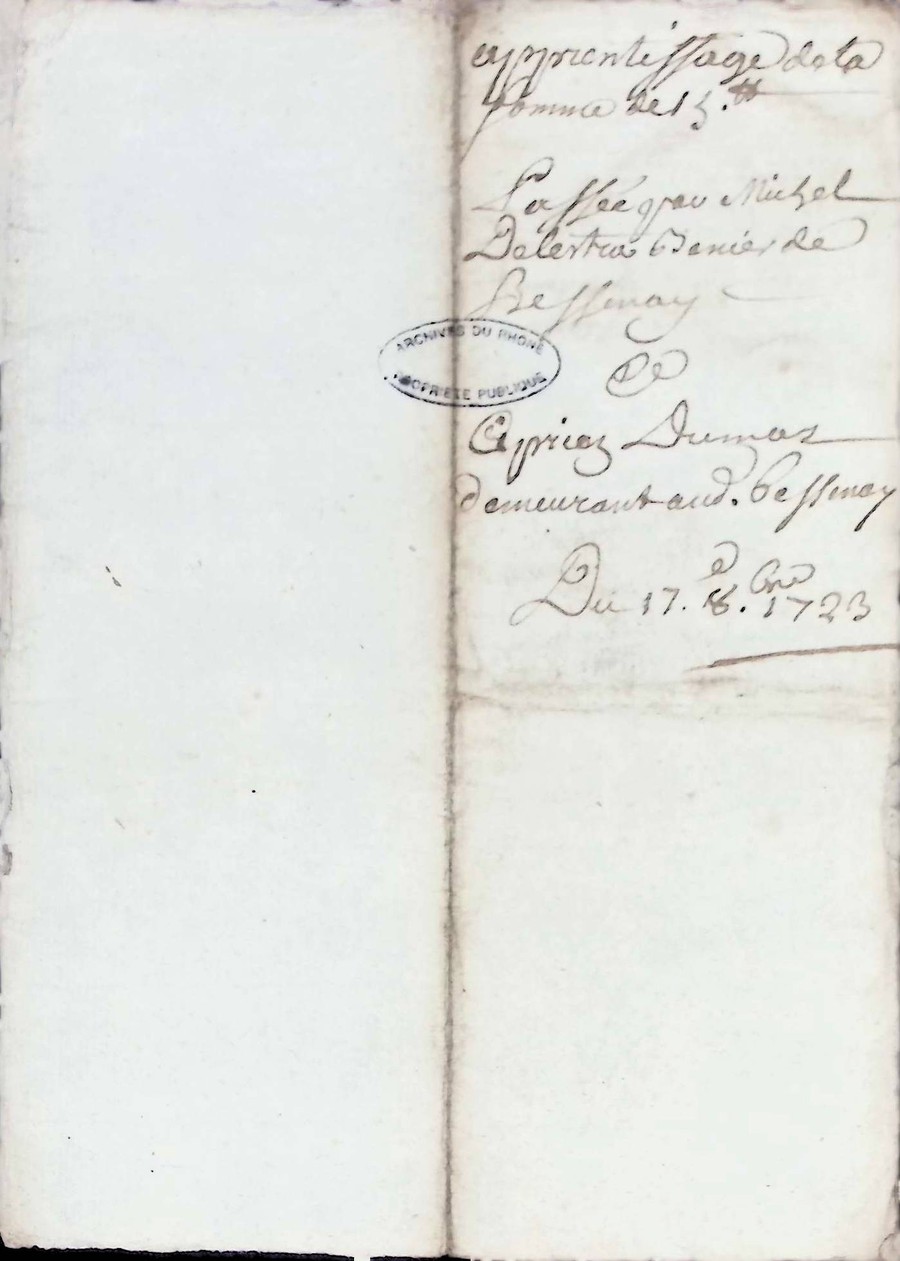 apprentissage de la
somme de 15.ᵗᵗ
Passée par Michel
Delestra Benier de
Bessenay
ARCHIVES DU RHONE
PROPRIETE PUBLIQUE
Ce
Cypriez Dumas
demeurant aud. bessenay
Du 17.ᵉ 8.bre 1723